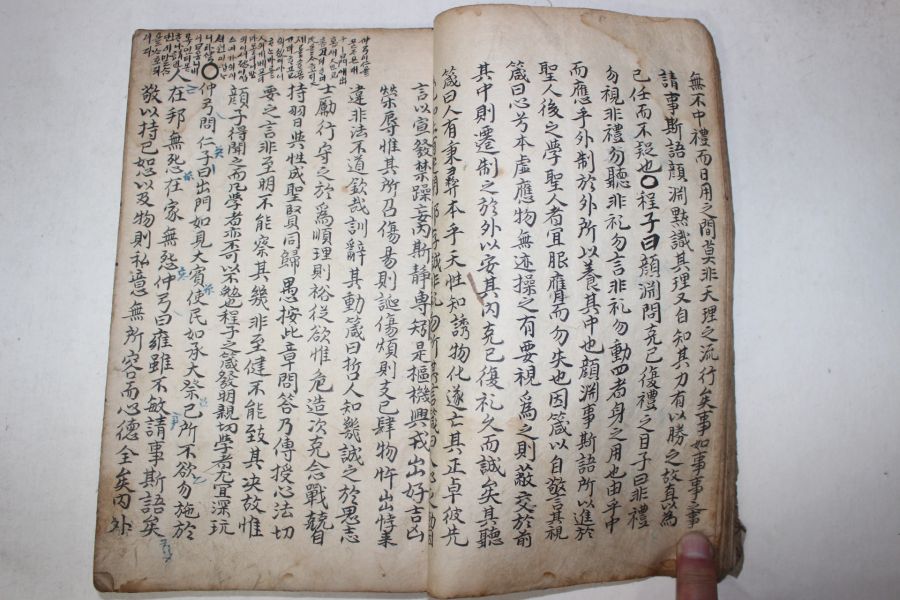 無不中禮而日用之間莫非天理之流行矣事如事事之事
請事斯語顔淵黙識其理又自知其力有以勝之故直以為
已任而不疑也〇程子曰顔淵問克已復禮之目子曰非禮
勿視非禮勿聽非礼勿言非礼勿動四者身之用也由乎中
而應乎外制於外所以養其中也顔淵事斯語所以進於
聖人後之學聖人者宜服膺而勿失也因箴以自警其視
箴曰心兮本虛應物無迹操之有要視爲之則蔽交於前
其中則遷制之於外以安其內克已復礼久而誠矣其聽
箴曰人有秉彛本乎天性知誘物化遂亡其正卓彼先
言以宣發禁躁妄內斯靜專矧是樞機興戎出好吉凶
榮辱惟其所召傷易則誕傷煩則支已肆物忤出悖來
違非法不道欽哉訓辭其動箴曰哲人知幾誠之於思志
士勵行守之於爲順理則裕從欲惟危造次克念戰兢自
持習與性成聖賢同歸愚按此章問答乃傳授心法切
要之言非至明不能察其幾非至健不能致其决故惟
顔子得聞之而凡學者亦不可以不勉也程子之箴發明親切學者尤宜深玩
〇仲弓問仁子曰出門如見大賓使民如承大祭已所不欲勿施於
人在邦無怨在家無怨仲弓曰雍雖不敏請事斯語矣
敬以持已恕以及物則私意無所容而心德全矣內外